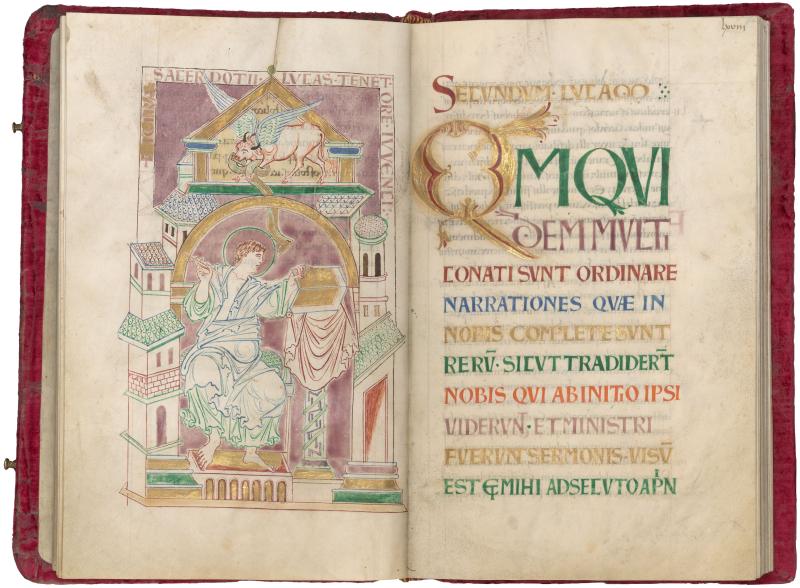 SACERDOTII · LVCAS · TENET ·
ORE · IVVENCI
SECVNDVM · LVCAM
QM QVI
DEM MVLTI
CONATI SVNT ORDINARE
NARRATIONES QVÆ IN
NOBIS COMPLETE SVNT
RERV̄ · SICVT TRADIDERT̄
NOBIS QVI AB INITIO IPSI
VIDERVNT · ET MINISTRI
FVERVNT SERMONIS · VISV̄
EST ET MIHI ADSECVTO A PⁱN